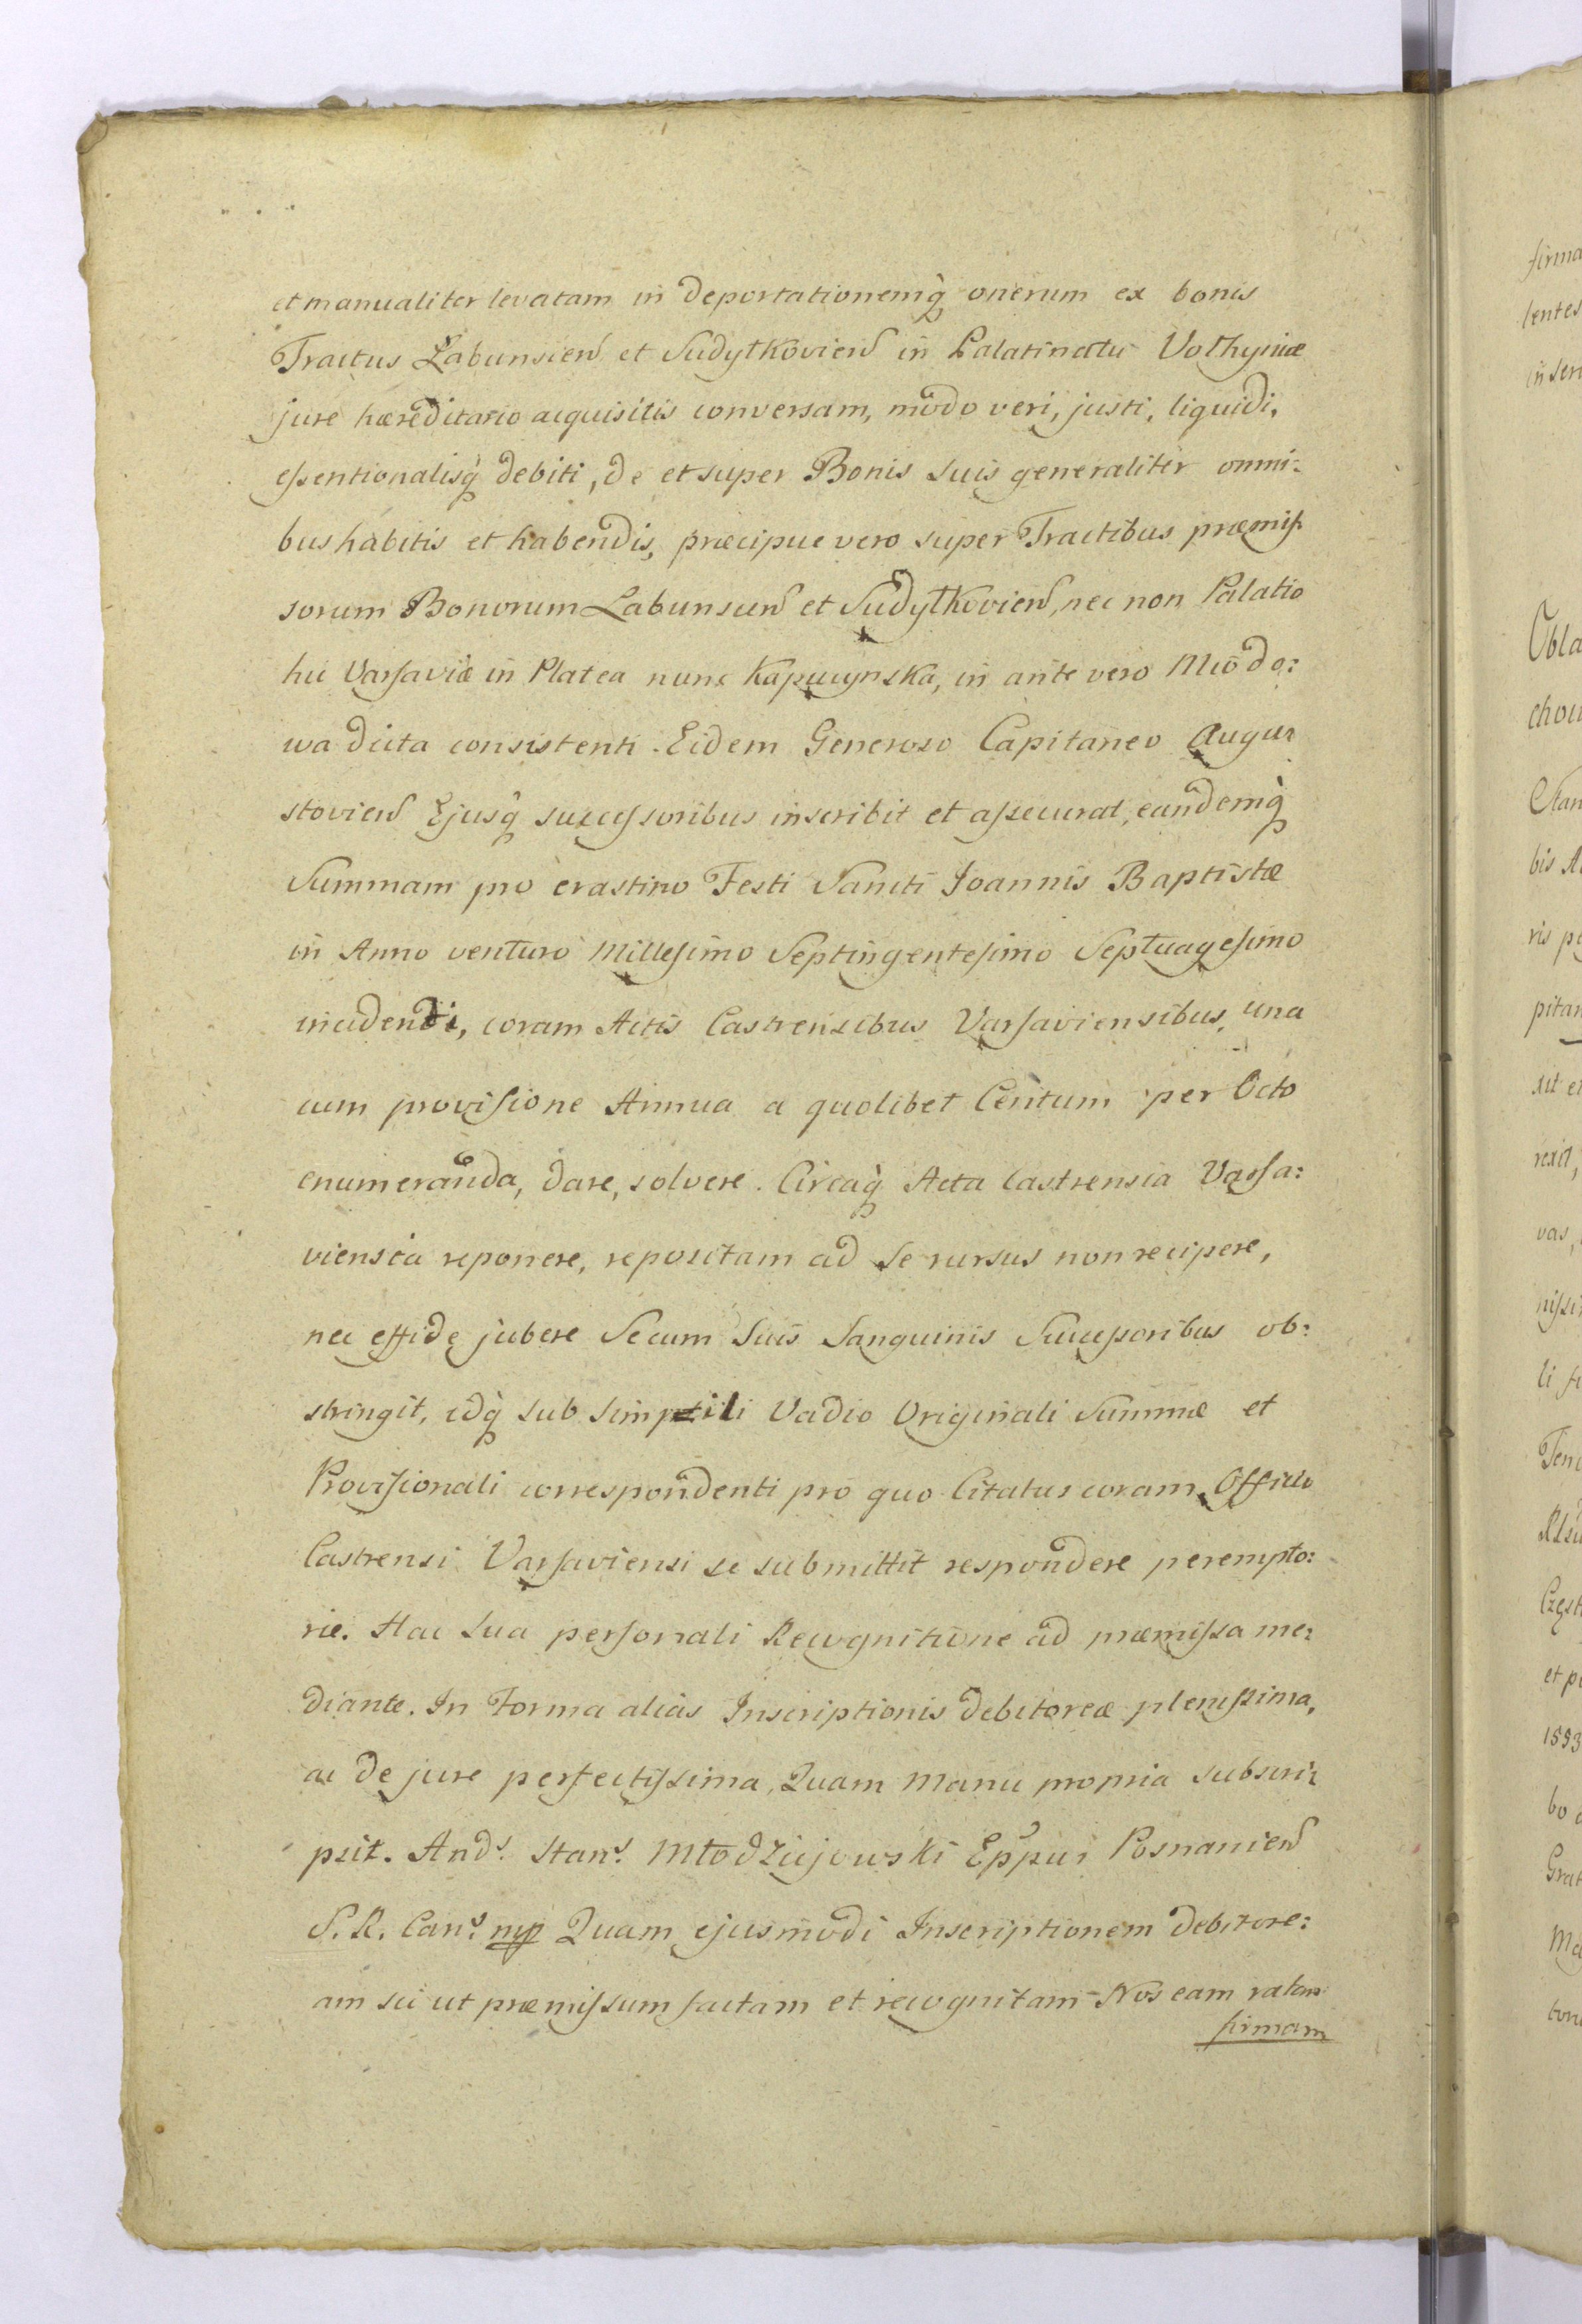 et manualiter levatam in deportationemq̀ onerum ex bonis
Tractus Łabunsien̄ et Sudyłkovien̄ in Palatinatu Volhyniæ
jure hæreditario acquisitis conversam, modo veri, justi, liquidi,
essentionalisq̀ debiti, de et super Bonis suis generaliter omni:
bus habitis et habendis, præcipue vero super Tractibus præmis
sorum Bonorum Labunsien̄ et Sudyłkovien̄, nec non Palatio
hic Varsaviæ in Platea nunc Kapucynska, in ante vero Miodo:
wa dicta consistenti. Eidem Generoso Capitaneo Augu:
stovien̄ Ejusq̀ successoribus inscribit et assecurat, eandemq̀
Summam pro crastino Festi Sancti Joannis Baptistæ
in Anno venturo Millesimo Septingentesimo Septuagesimo
incidendi, coram Actis Castrensibus Varsaviensibus, una
cum provisione Annua a quolibet Centum per Octo
enumeranda, dare, solvere. Circaq̀ Acta Castrensia Varsa:
viensia reponere, repositam ad se rursus non recipere,
nec effide jubere Secum Suis Sanguinis Successoribus ob:
stringit, idq̀ sub simpili Vadio Originali Summæ et
Provisionali correspondenti pro quo Citatus coram Officio
Castrensi Varsaviensi se submittit respondere perempto:
rie. Hac Sua personali Recognitione ad præmissa me:
diante. In Forma alias Inscriptionis debitoreæ plenissima,
ac de jure perfectissima, Quam Manu propria subscri:
psit. And.s Stan.s Młodziejowski Eppus Posnanien̄
S. R. Can.s mp Quam ejusmodi Inscriptionem debitore:
am sic ut præmissum factam et recognitam Nos eam ratam
firmam
firma
lentes
in ser
Obla
chow
Stan
bis A
ris p
pitan
xit e
rexit,
vas,
nissi
li f
Ten
Częst
et p
1593
bo
Grat
Ma